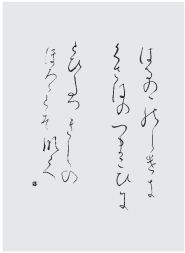 はるのゝのしけき
くさはのつまこひに
とひたつきしの
ほろゝとそ鳴く